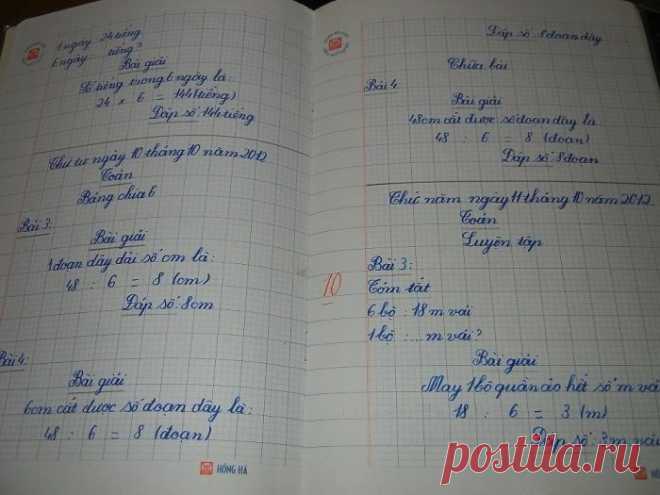 1 ngày 24 tiếng
6 ngày tiếng?
Bài giải
Số tiếng trong 6 ngày là:
24 x 6 = 144 (tiếng)
Đáp số: 144 tiếng
Thứ tư ngày 10 tháng 10 năm 2012
Toán
Bảng chia 6
Bài 3:
Bài giải
1 đoạn dây dài số cm là:
48 : 6 = 8 (cm)
Đáp số: 8cm
Bài 4:
Bài giải
6cm cắt được số đoạn dây là:
48 : 6 = 8 (đoạn)
HỒNG HÀ
Đáp số: 8 đoạn dây
Chữa bài
Bài 4
Bài giải
48cm cắt được số đoạn dây là
48 : 6 = 8 (đoạn)
Đáp số: 8 đoạn
Thứ năm ngày 11 tháng 10 năm 2012
Toán
Luyện tập
10
Bài 3:
Tóm tắt
6 bộ : 18 m vải
1 bộ : ... m vải?
Bài giải
May 1 bộ quần áo hết số m vải
18 : 6 = 3 (m)
Đáp số: 3 m vải
HỒNG HÀ
postila.ru